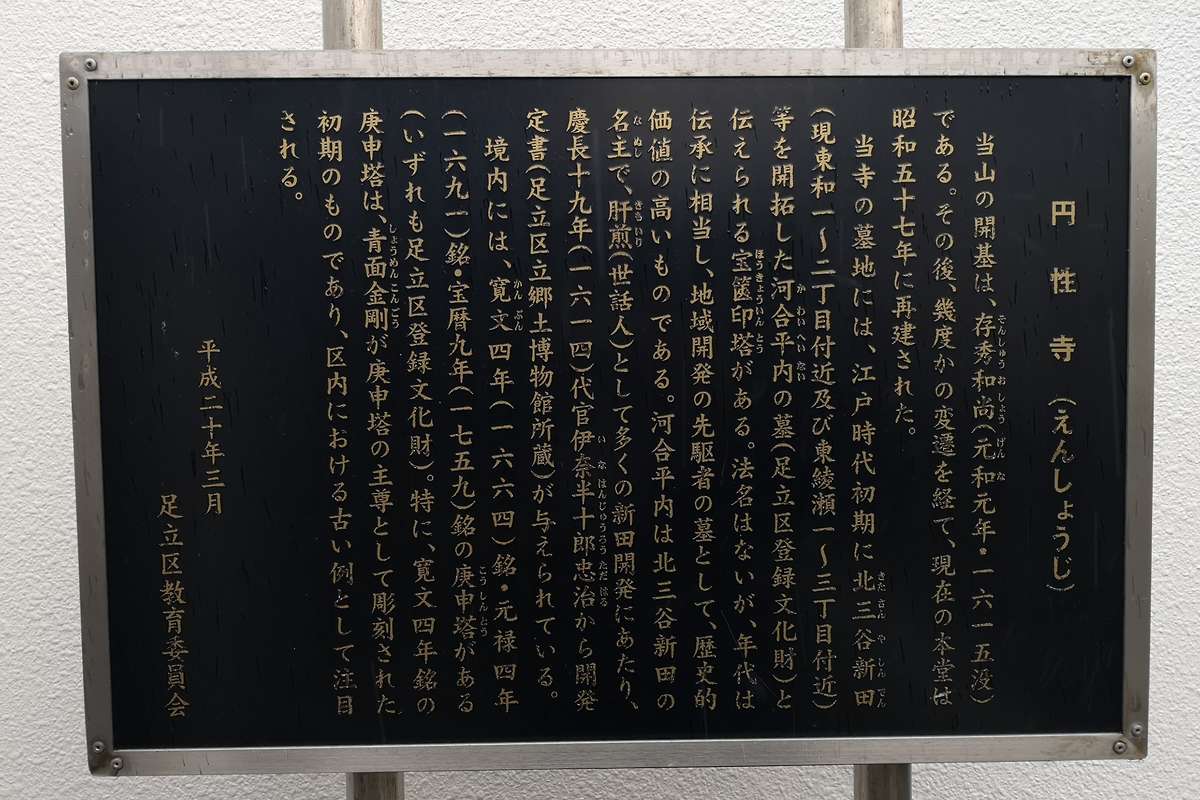 円性寺(えんしょうじ)
当山の開基は、存秀和尚(元和元年・一六一五没)
である。その後、幾度かの変遷を経て、現在の本堂は
昭和五十七年に再建された。
当寺の墓地には、江戸時代初期に北三谷新田
(現東和一〜二丁目付近及び東綾瀬一〜三丁目付近)
等を開拓した河合平内の墓(足立区登録文化財)と
伝えられる宝篋印塔がある。法名はないが、年代は
伝承に相当し、地域開発の先駆者の墓として、歴史的
価値の高いものである。河合平内は北三谷新田の
名主で、肝煎(世話人)として多くの新田開発にあたり、
慶長十九年(一六一四)代官伊奈半十郎忠治から開発
定書(足立区立郷土博物館所蔵)が与えられている。
境内には、寛文四年(一六六四)銘・元禄四年
(一六九一)銘・宝暦九年(一七五九)銘の庚申塔がある
(いずれも足立区登録文化財)。特に、寛文四年銘の
庚申塔は、青面金剛が庚申塔の主尊として彫刻された
初期のものであり、区内における古い例として注目
される。
平成二十年三月
足立区教育委員会